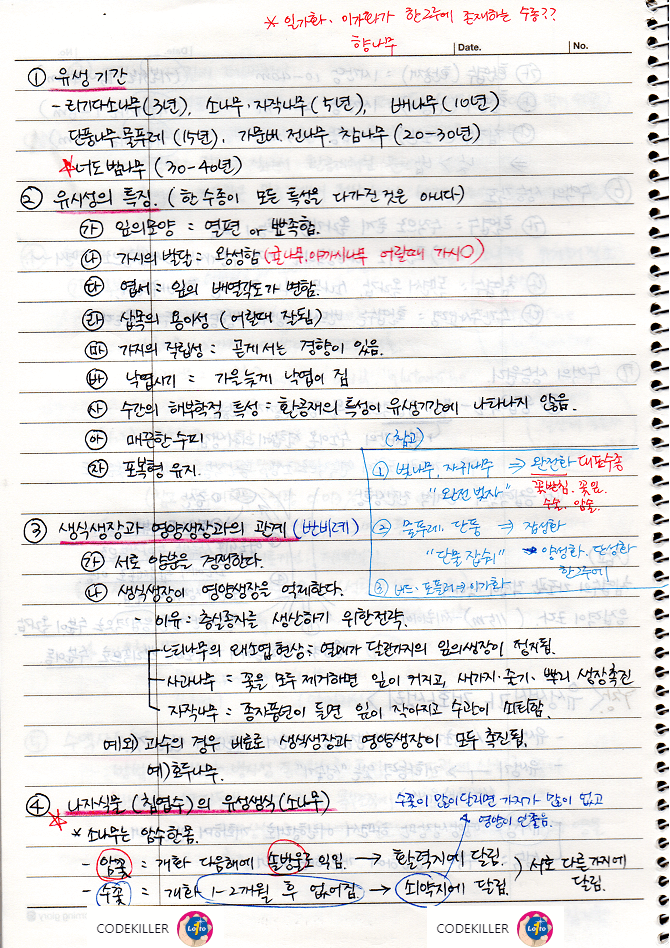 * 일가화. 이가화가 한그루에 존재하는 수종??
향나무
Date.
No.
① 유성기간
- 리기다소나무(3년), 소나무·자작나무(5년), 배나무(10년)
단풍나무.물푸레(15년), 가문비.전나무.참나무(20-30년)
*너도밤나무(30-40년)
② 유시성의 특징. (한 수종이 모든 특성을 다가진것은 아니다)
㉮ 잎의모양 = 열편 or 뾰족함.
㉯ 가시의 발달 = 왕성함 (귤나무.아까시나무 어릴때 가시○)
㉰ 엽서 = 잎의 배열각도가 변함.
㉱ 삽목의 용이성 (어릴때 잘됨)
㉲ 가지의 직립성 = 곧게서는 경향이 있음.
㉳ 낙엽시기 = 가을늦게 낙엽이 짐
㉴ 수간의 해부학적 특성 = 환공재의 특성이 유생기간에 나타나지 않음.
㉵ 매끈한 수피
㉶ 포복형 유지.
(참고)
① 벚나무, 자귀나무 ⇒ 완전화 대표수종
"완전 벚자"
꽃받침. 꽃잎. 수술. 암술
② 물푸레. 단풍 ⇒ 잡성화
"단물잡쉬"
양성화. 단성화
한그루에
③ 버드·포플러 ⇒ 이가화
③ 생식생장과 영양생장과의 관계 (반비례)
㉮ 서로 양분을 경쟁한다.
㉯ 생식생장이 영양생장을 억제한다.
- 이유 = 충실종자를 생산하기 위한전략.
느티나무의 왜소엽현상 = 열매가 달린가지의 잎의생장이 정지됨.
사과나무 = 꽃을 모두 제거하면 잎이 커지고, 새가지·줄기·뿌리 생장촉진
자작나무 = 종자풍년이 들면 잎이 작아지고 수관이 쇠퇴함.
예외) 과수의 경우 비료로 생식생장과 영양생장이 모두 촉진됨.
예) 호두나무.
④ 나자식물 (침엽수)의 유성생식 (소나무)
수꽃이 많이달리면 가지가 많이 없고
영양이 안좋음.
* 소나무는 암수한몸.
- 암꽃 = 개화 다음해에 솔방울로 익임. → 활력지에 달림.
- 수꽃 = 개화 1-2개월 후 없어짐. → 쇠약지에 달림.
) 서로 다른가지에 달림.
CODEKILLER
Lotto
CODEKILLER
Lotto